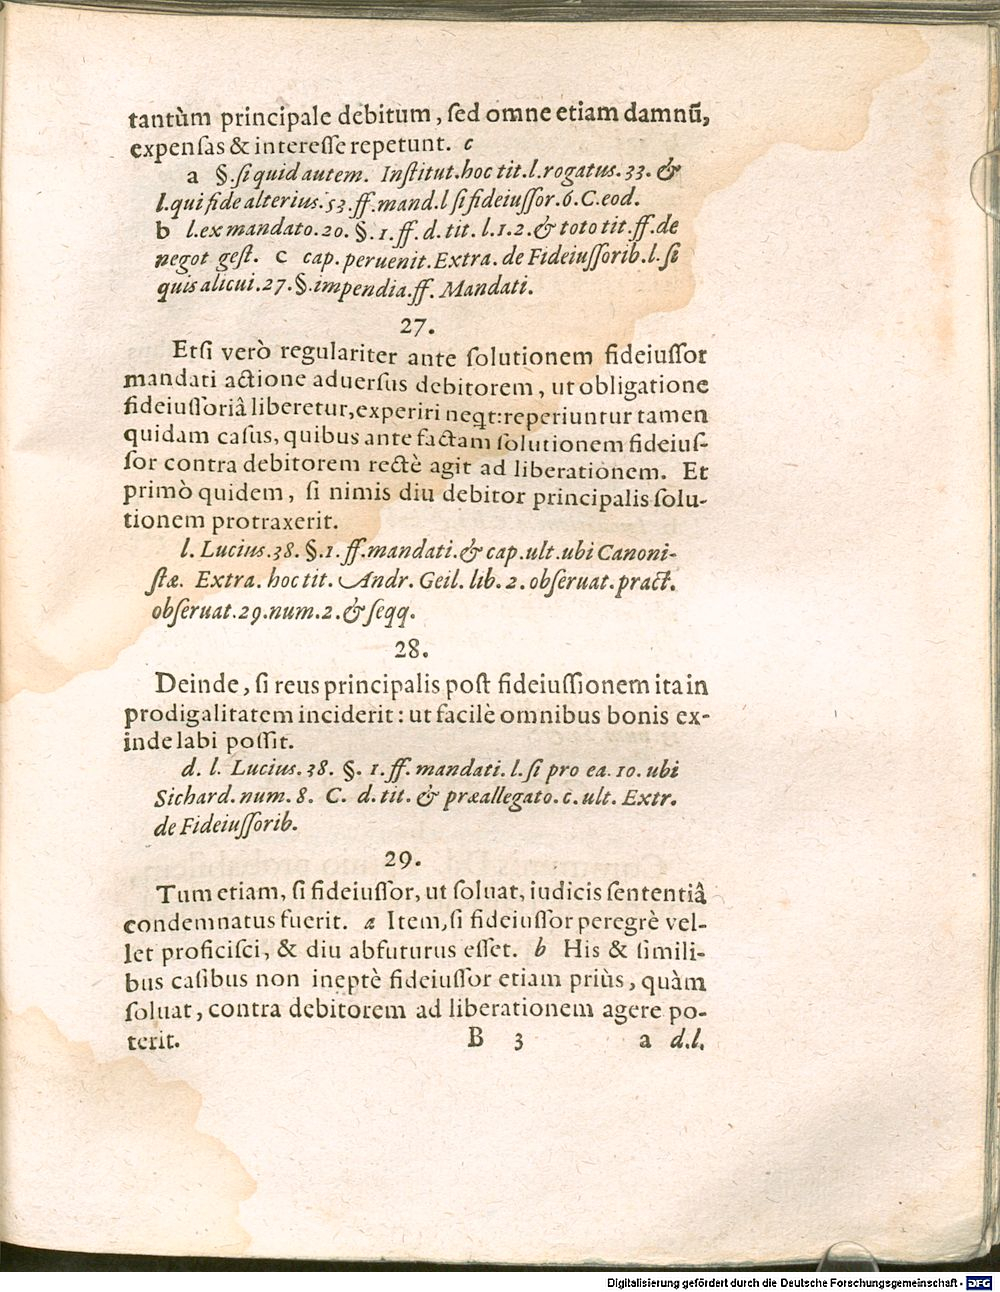 tantùm principale debitum, ſed omne etiam damnū,
expenſas & intereſſe repetunt. c
a §. ſi quid autem. Inſtitut. hoc tit. l. rogatus. 33. &
l. qui fide alterius. 53. ff. mand. l ſi fideiuſſor. 6. C. eod.
b l. ex mandato. 20. §. 1. ff. d. tit. l. 1. 2. & toto tit. ff. de
negot geſt. c cap. peruenit. Extra. de Fideiuſſorib. l. ſi
quis alicui. 27. §. impendia. ff. Mandati.
27.
Etſi verò regulariter ante ſolutionem fideiuſſor
mandati actione aduerſus debitorem, ut obligatione
fideiuſſoriâ liberetur, experiri neqt: reperiuntur tamen
quidam caſus, quibus ante factam ſolutionem fideiuſ-
ſor contra debitorem rectè agit ad liberationem. Et
primò quidem, ſi nimis diu debitor principalis ſolu-
tionem protraxerit.
l. Lucius. 38. §. 1. ff. mandati. & cap. ult. ubi Canoni-
ſtæ. Extra. hoc tit. Andr. Geil. lib. 2. obſeruat. pract.
obſeruat. 29. num. 2. & ſeqq.
28.
Deinde, ſi reus principalis poſt fideiuſſionem ita in
prodigalitatem inciderit: ut facilè omnibus bonis ex-
inde labi poſſit.
d. l. Lucius. 38. §. 1. ff. mandati. l. ſi pro ea. 10. ubi
Sichard. num. 8. C. d. tit. & præallegato. c. ult. Extr.
de Fideiuſſorib.
29.
Tum etiam, ſi fideiuſſor, ut ſoluat, iudicis ſententiâ
condemnatus fuerit. a Item, ſi fideiuſſor peregrè vel-
let proficiſci, & diu abfuturus eſſet. b His & ſimili-
bus caſibus non ineptè fideiuſſor etiam priùs, quàm
ſoluat, contra debitorem ad liberationem agere po-
terit.
B 3 a d. l.
Digitalisierung gefördert durch die Deutsche Forschungsgemeinschaft - DFG